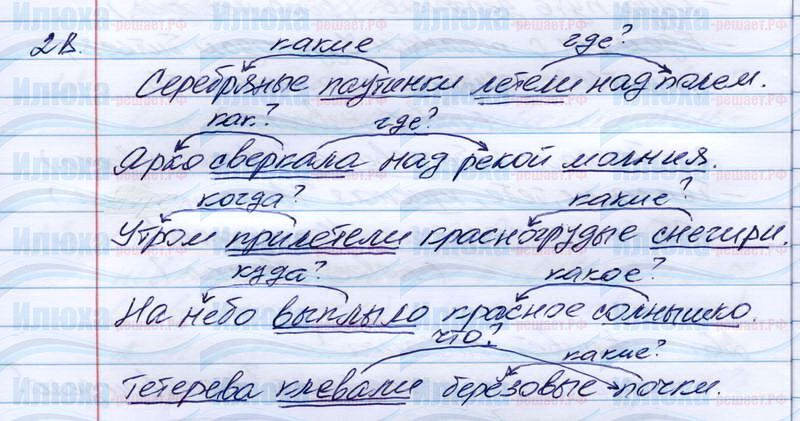 2В. какие где?
Серебряные паутинки летели над полем.
как? где?
Ярко сверкала над рекой молния.
когда? какие?
Утром прилетели красногрудые снегири.
куда? какое?
На небо выплыло красное солнышко.
что? какие?
Тетерева клевали берёзовые почки.